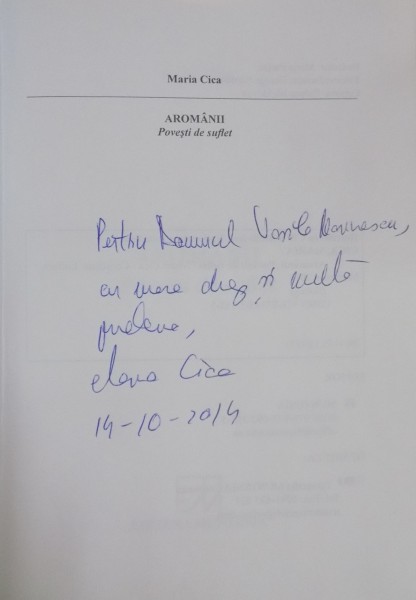 Maria Cica
AROMÂNII
Povești de suflet
Pentru Domnul Vasile
cu mare drag și multă
prețuire,
Maria Cica
14-10-2014